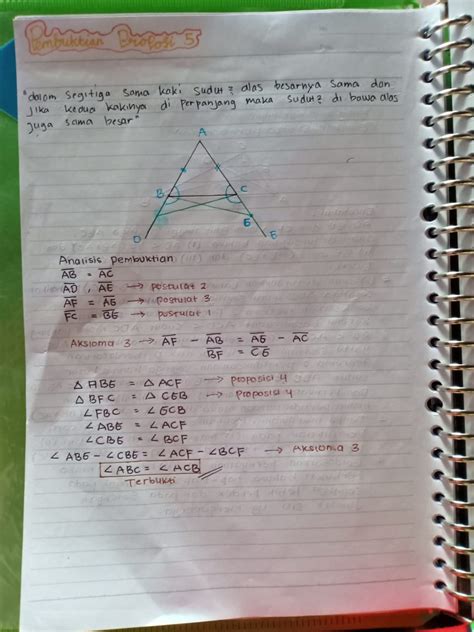 Pembuktian Proposisi 5
"dalam segitiga sama kaki sudut2 alas besarnya sama dan
jika kedua kakinya di perpanjang maka sudut2 di bawa alas
juga sama besar"
A
B C
G
D E
Analisis pembuktian
AB = AC
AD , AE → postulat 2
AF = AG → postulat 3
FC = BG → postulat 1
Aksioma 3 → AF - AB = AG - AC
BF = CG
△ ABG = △ ACF → proposisi 4
△ BFC = △ CGB → Proposisi 4
∠ FBC = ∠ GCB
∠ ABG = ∠ ACF
∠ CBG = ∠ BCF
∠ ABG - ∠ CBG = ∠ ACF - ∠ BCF → Aksioma 3
∠ ABC = ∠ ACB
Terbukti